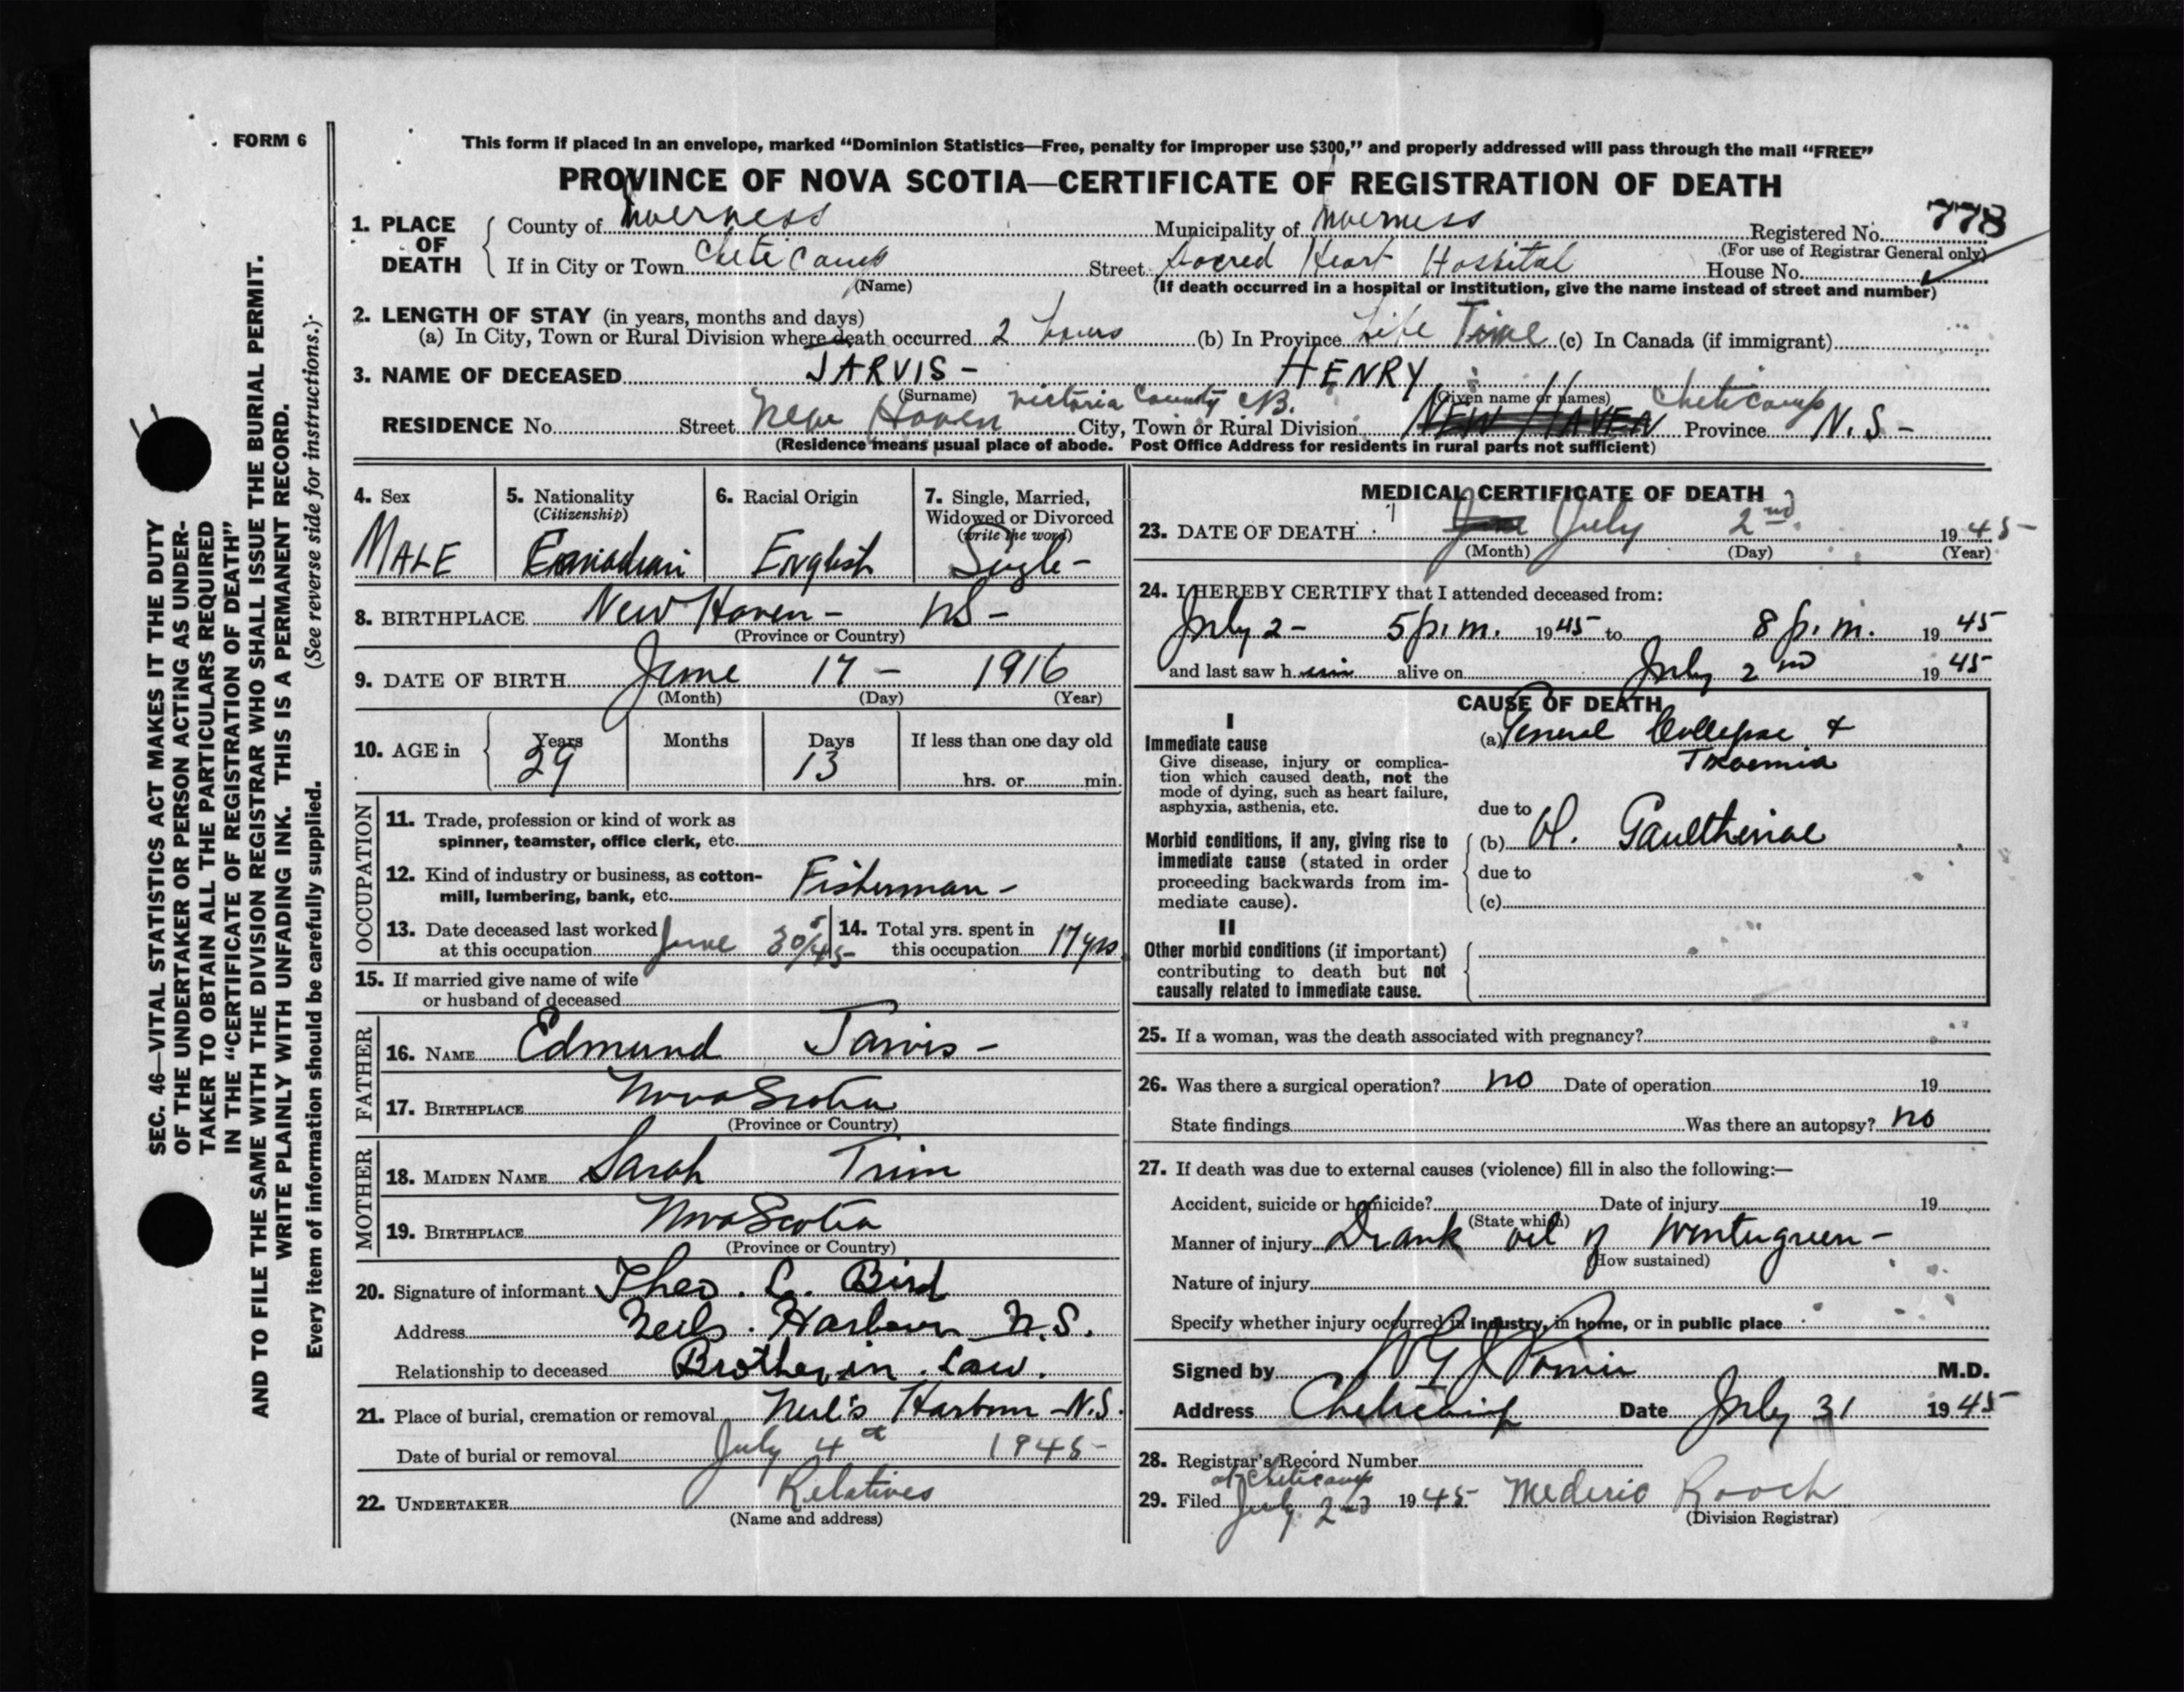 FORM 6
This form if placed in an envelope, marked "Dominion Statistics—Free, penalty for improper use $300," and properly addressed will pass through the mail "FREE"
PROVINCE OF NOVA SCOTIA—CERTIFICATE OF REGISTRATION OF DEATH
1. PLACE OF DEATH
County of Inverness Municipality of Inverness Registered No. 778
(For use of Registrar General only)
If in City or Town Cheticamp Street Sacred Heart Hospital House No.
(Name) (If death occurred in a hospital or institution, give the name instead of street and number)
2. LENGTH OF STAY (in years, months and days)
(a) In City, Town or Rural Division where death occurred 2 hours (b) In Province Life Time (c) In Canada (if immigrant)
3. NAME OF DECEASED JARVIS - HENRY
(Surname) (Given name or names)
Victoria County CB. Cheticamp
RESIDENCE No. Street New Haven City, Town or Rural Division NEW HAVEN Province N.S -
(Residence means usual place of abode. Post Office Address for residents in rural parts not sufficient)
4. Sex
MALE
5. Nationality
(Citizenship)
Canadian
6. Racial Origin
English
7. Single, Married,
Widowed or Divorced
(write the word)
Single -
8. BIRTHPLACE New Haven - NS -
(Province or Country)
9. DATE OF BIRTH June 17 - 1916
(Month) (Day) (Year)
10. AGE in Years Months Days If less than one day old
29 13 hrs. or min.
OCCUPATION
11. Trade, profession or kind of work as
spinner, teamster, office clerk, etc.
12. Kind of industry or business, as cotton-
mill, lumbering, bank, etc. Fisherman -
13. Date deceased last worked
at this occupation June 30/45
14. Total yrs. spent in
this occupation 17 yrs
15. If married give name of wife
or husband of deceased
FATHER
16. NAME Edmund Jarvis -
17. BIRTHPLACE Nova Scotia
(Province or Country)
MOTHER
18. MAIDEN NAME Sarah Trim
19. BIRTHPLACE Nova Scotia
(Province or Country)
20. Signature of informant Theo. C. Bird
Address Neils. Harbour N.S.
Relationship to deceased Brother in. Law.
21. Place of burial, cremation or removal Neil's Harbour - N.S.
Date of burial or removal July 4th 1945-
22. UNDERTAKER Relatives
(Name and address)
MEDICAL CERTIFICATE OF DEATH
23. DATE OF DEATH June July 2nd. 1945-
(Month) (Day) (Year)
24. I HEREBY CERTIFY that I attended deceased from:
July 2 - 5 p.m. 1945 to 8 p.m. 1945
and last saw him alive on July 2nd 1945
CAUSE OF DEATH
I
Immediate cause
Give disease, injury or complica-
tion which caused death, not the
mode of dying, such as heart failure,
asphyxia, asthenia, etc.
(a) General Collapse &
Toxemia
due to
Morbid conditions, if any, giving rise to
immediate cause (stated in order
proceeding backwards from im-
mediate cause).
(b) Ol. Gaultheriae
due to
(c)
II
Other morbid conditions (if important)
contributing to death but not
causally related to immediate cause.
25. If a woman, was the death associated with pregnancy?
26. Was there a surgical operation? no Date of operation 19
State findings Was there an autopsy? no
27. If death was due to external causes (violence) fill in also the following:—
Accident, suicide or homicide? Date of injury 19
(State which)
Manner of injury Drank oil of Wintergreen -
(How sustained)
Nature of injury
Specify whether injury occurred in industry, in home, or in public place
Signed by M.D.
Address Cheticamp Date July 31 1945
28. Registrar's Record Number
at Cheticamp
29. Filed July 2nd 1945 Mederic Roach
(Division Registrar)
SEC. 46—VITAL STATISTICS ACT MAKES IT THE DUTY
OF THE UNDERTAKER OR PERSON ACTING AS UNDER-
TAKER TO OBTAIN ALL THE PARTICULARS REQUIRED
IN THE "CERTIFICATE OF REGISTRATION OF DEATH"
AND TO FILE THE SAME WITH THE DIVISION REGISTRAR WHO SHALL ISSUE THE BURIAL PERMIT.
WRITE PLAINLY WITH UNFADING INK. THIS IS A PERMANENT RECORD.
Every item of information should be carefully supplied. (See reverse side for instructions.)